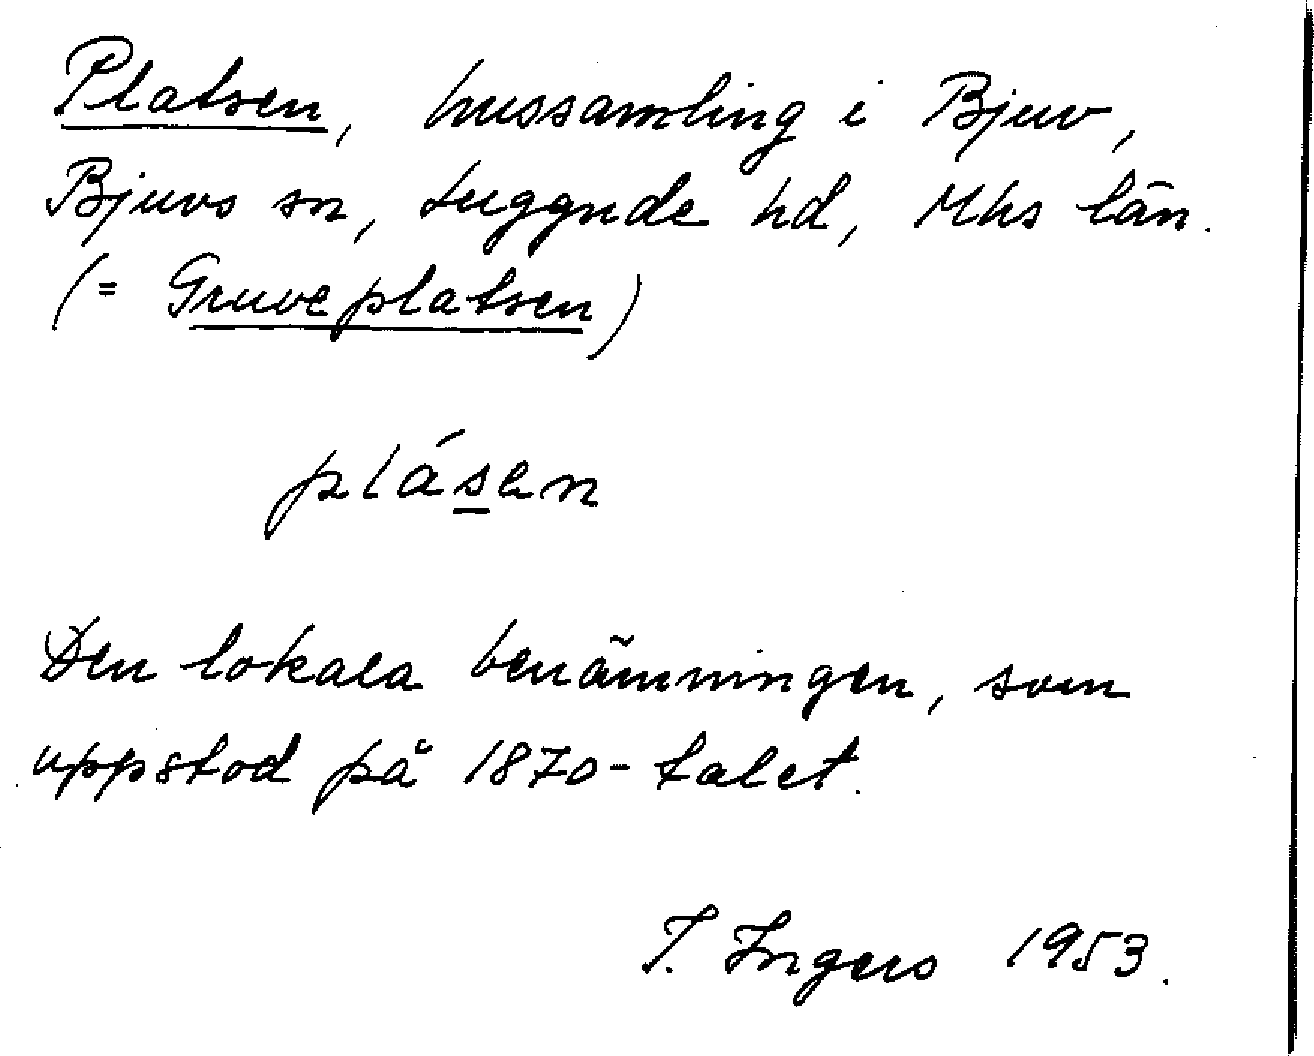 Platsen, hussamling i Bjuv,
Bjuvs sn, Luggude hd, Mhs län.
(= Gruveplatsen)
plásen
Den lokala benämningen, som
uppstod på 1870-talet.
I. Ingers 1953.